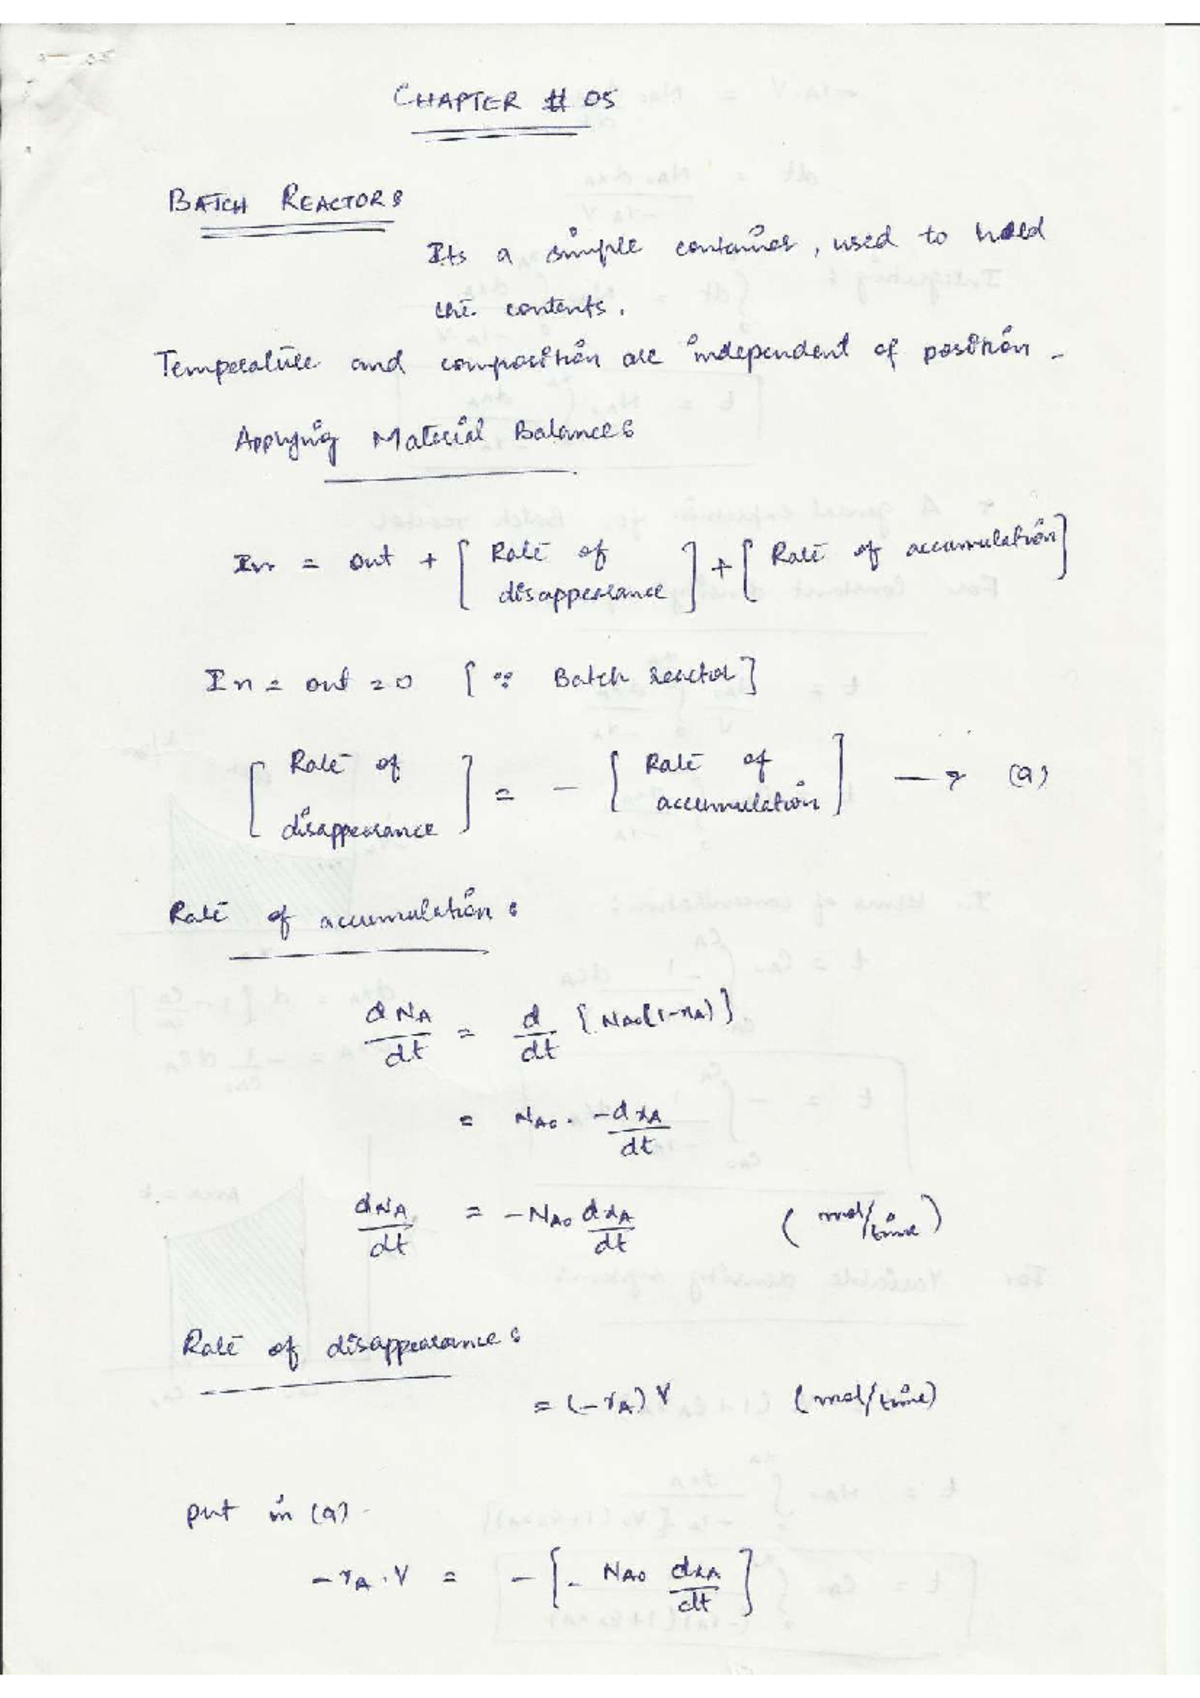 CHAPTER # 05
BATCH REACTOR :
Its a simple container, used to hold
the contents.
Temperature and composition are independent of position.
Applying Material Balance :
In = out + [ Rate of disappearance ] + [ Rate of accumulation ]
In = out = 0 [ ∵ Batch reactor ]
[ Rate of disappearance ] = - [ Rate of accumulation ] → (a)
Rate of accumulation :
dNA/dt = d/dt [ NAo(1-xA) ]
= NAo . -dxA/dt
dNA/dt = -NAo dxA/dt ( mol/time )
Rate of disappearance :
= (-rA) V (mol/time)
put in (a).
-rA . V = - [ - NAo dxA/dt ]